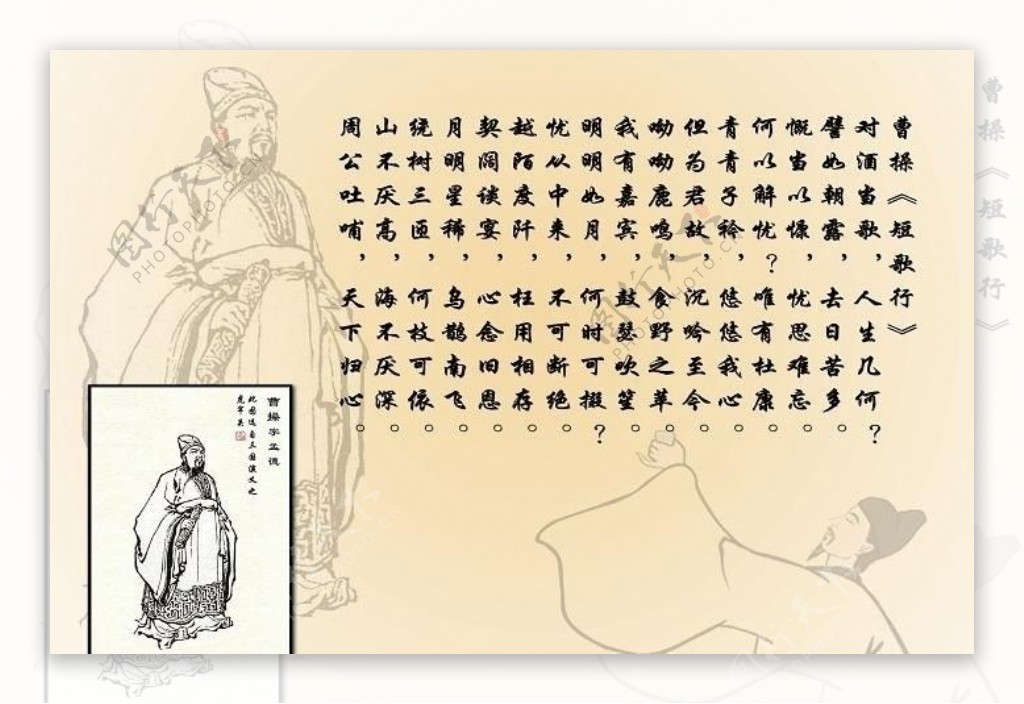 曹操《短歌行》
对酒当歌，人生几何？
譬如朝露，去日苦多。
慨当以慷，忧思难忘。
何以解忧？唯有杜康。
青青子衿，悠悠我心。
但为君故，沉吟至今。
呦呦鹿鸣，食野之苹。
我有嘉宾，鼓瑟吹笙。
明明如月，何时可掇？
忧从中来，不可断绝。
越陌度阡，枉用相存。
契阔谈宴，心念旧恩。
月明星稀，乌鹊南飞。
绕树三匝，何枝可依。
山不厌高，海不厌深。
周公吐哺，天下归心。
曹操字孟德
此图选自三国演义之
曹操《短歌行》
图行天下
PHOTOPHOTO.CN